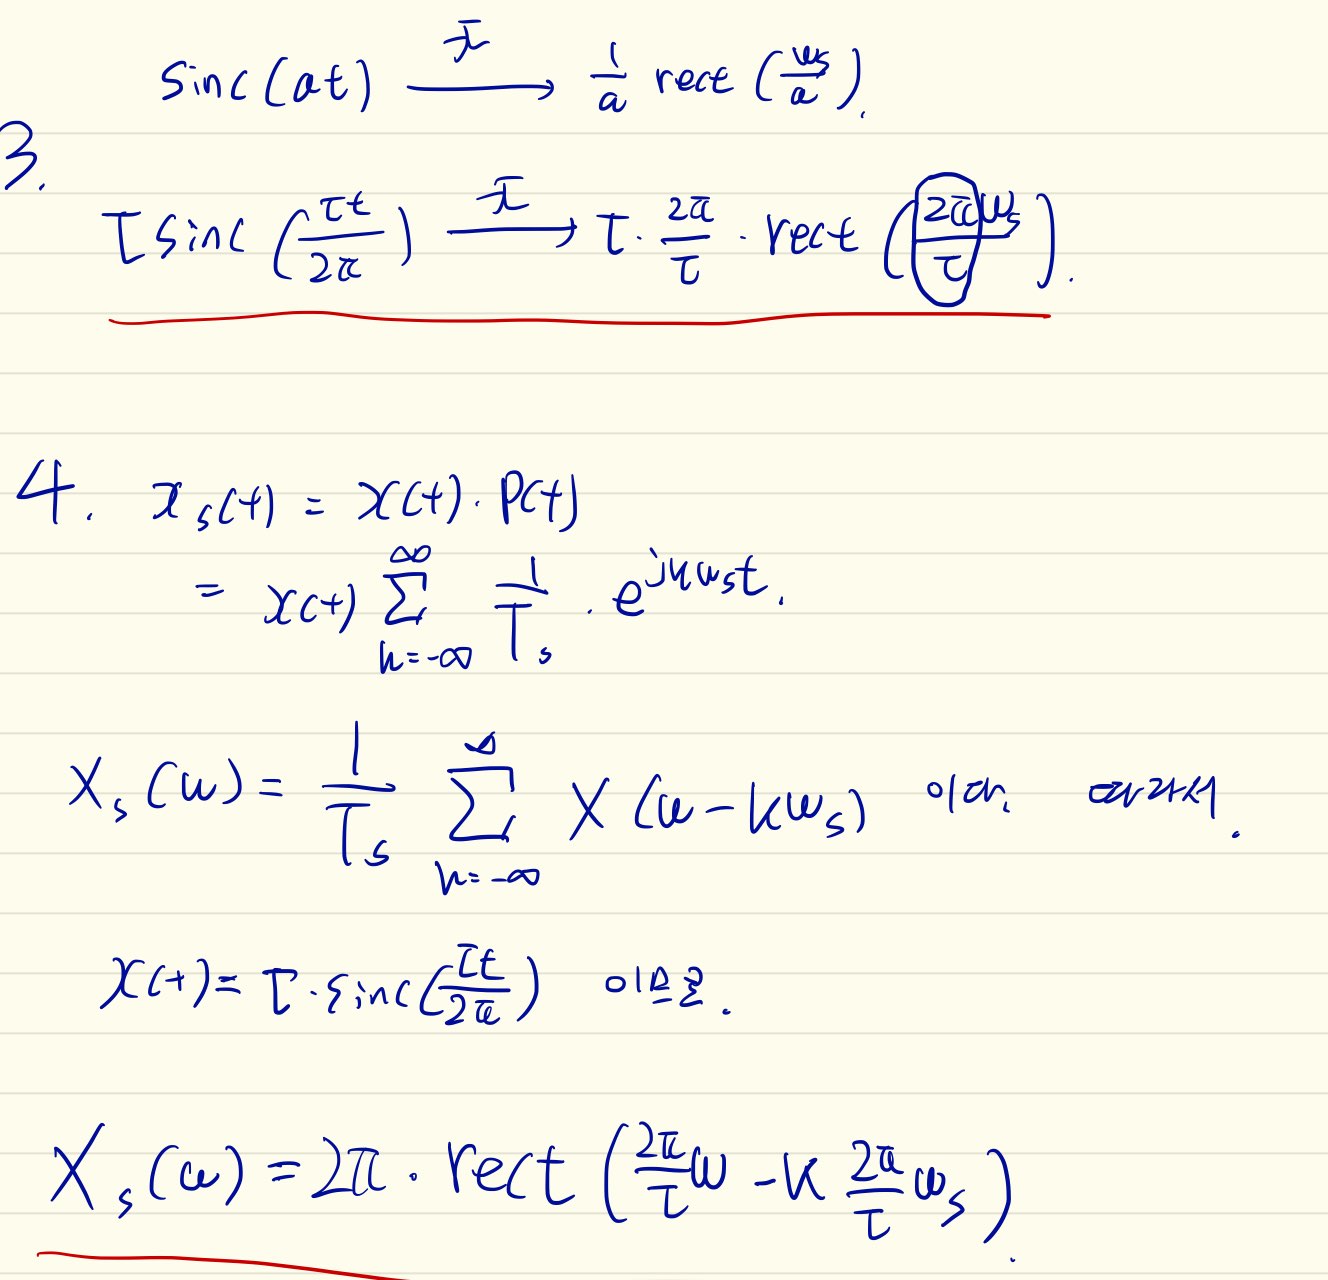 sinc(at) —ℱ→ 1/a rect(ωs/a).
3.
τ sinc(τt/2π) —ℱ→ τ · 2π/τ · rect(2πωs/τ).
4. xs(t) = x(t) · p(t)
= x(t) Σ_{k=-∞}^{∞} 1/Ts · e^{jkωst}.
Xs(ω) = 1/Ts Σ_{k=-∞}^{∞} X(ω-kωs) 이다. 따라서.
x(t) = τ · sinc(τt/2π) 이므로.
Xs(ω) = 2π · rect(2π/τ ω - k 2π/τ ωs).